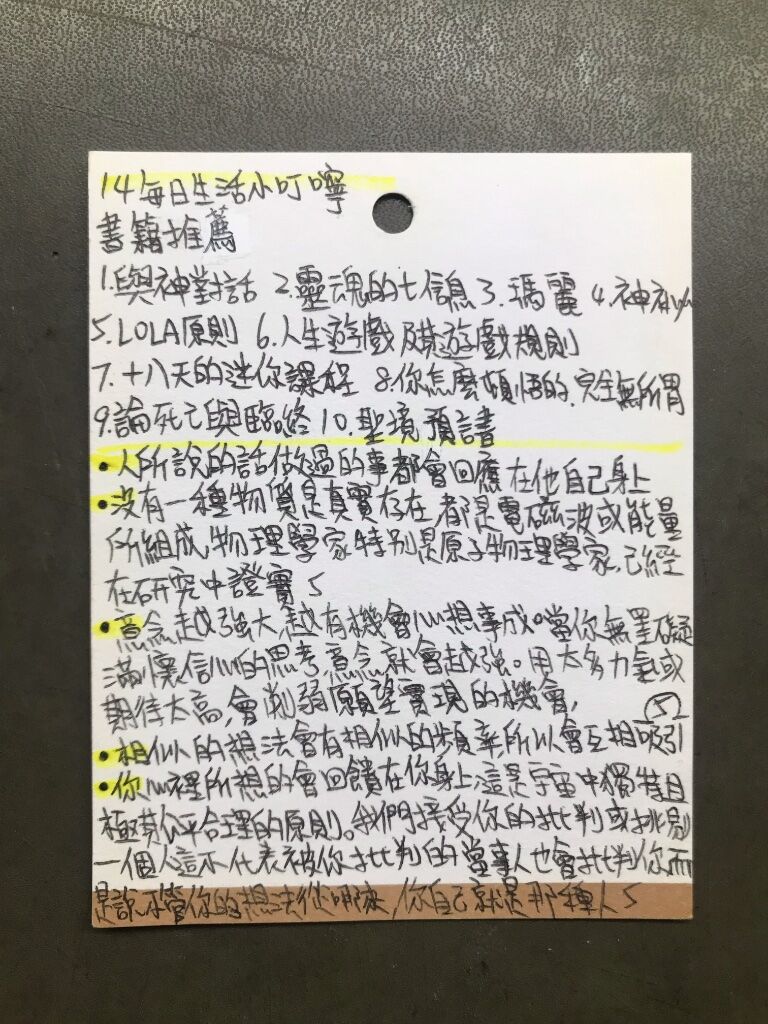 14每日生活小叮嚀
書籍推薦
1.與神對話 2.靈魂的七信息 3.瑪麗 4.神秘
5.LOLA原則 6.人生遊戲及其遊戲規則
7.十八天的迷你課程 8.你怎麼頓悟的.完全無所謂
9.論死亡與臨終 10.聖境預書
•人所說的話做過的事都會回應在他自己身上
•沒有一種物質是真實存在,都是電磁波或能量
所組成,物理學家,特別是原子物理學家,已經
在研究中證實 5
•意念越強大,越有機會心想事成。當你無罣礙
滿懷信心的思考,意念就會越強。用太多力氣或
期待太高,會削弱願望實現的機會,
5
•相似的想法會有相似的頻率,所以會互相吸引
•你心裡所想的會回饋在你身上,這是宇宙中獨特且
極其公平合理的原則。我們接受你的批判或挑剔
一個人這不代表被你批判的當事人也會批判你而
是說不管你的想法從哪來,你自己就是那種人 5